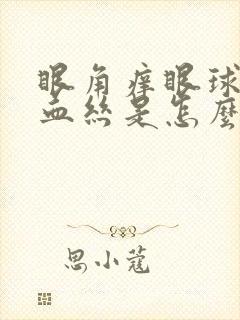 眼角痒眼球
血丝是怎麼
思小蔻